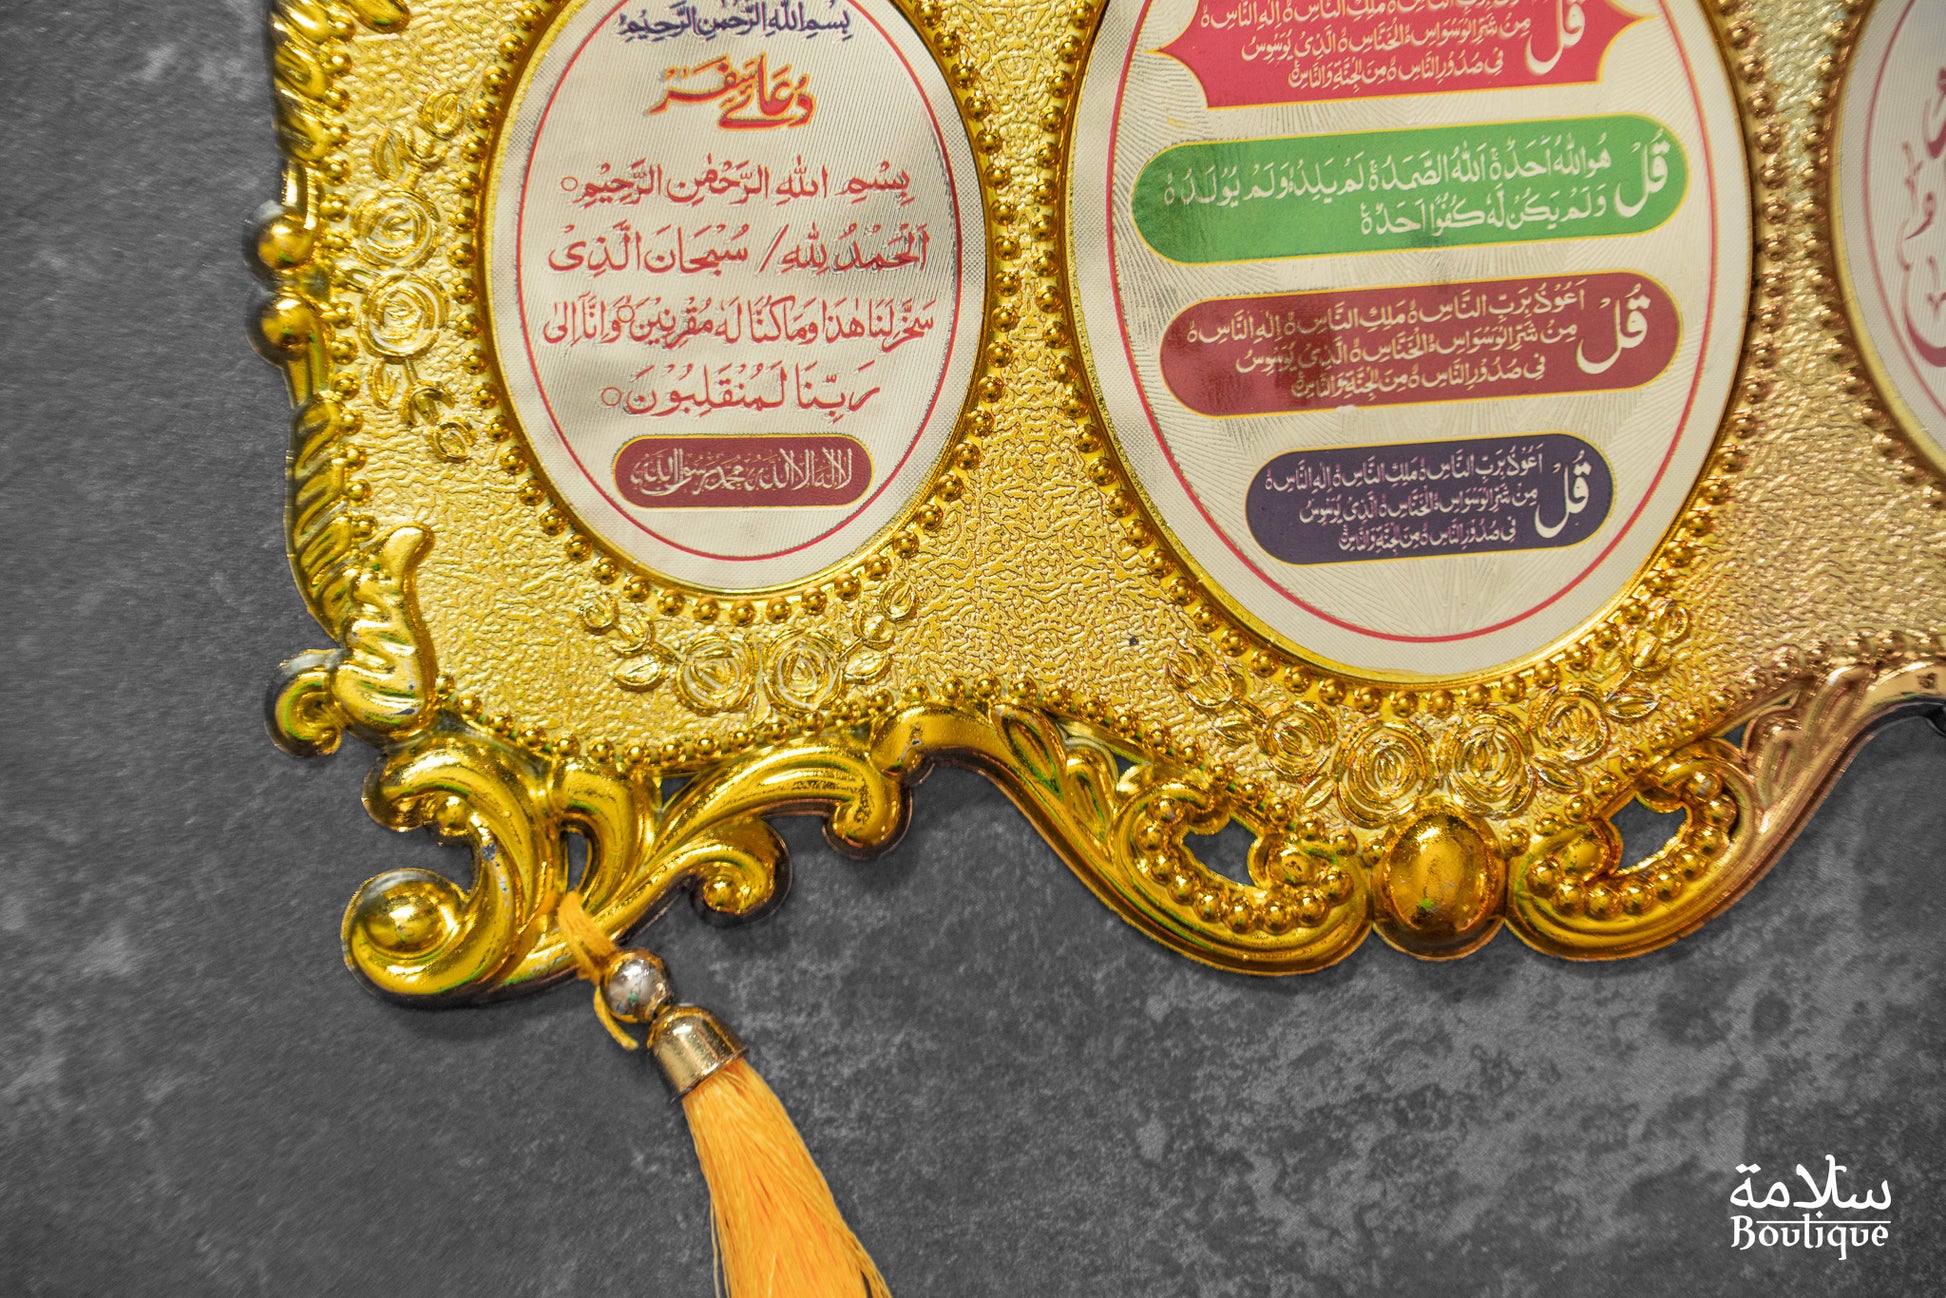 بِسْمِ اللهِ الرَّحْمٰنِ الرَّحِيْمِ
دُعَائے سَفَر
بِسْمِ اللهِ الرَّحْمٰنِ الرَّحِيْمِ○
اَلْحَمْدُ لِلّٰهِ / سُبْحَانَ الَّذِیْ
سَخَّرَ لَنَا هٰذَا وَمَا كُنَّا لَهٗ مُقْرِنِيْنَ○ وَاِنَّا اِلٰی
رَبِّنَا لَمُنْقَلِبُوْنَ○
لا اله الا الله محمد رسول الله
قُلْ
بِرَبِّ النَّاسِ مَلِكِ النَّاسِ اِلٰهِ النَّاسِ
مِنْ شَرِّ الْوَسْوَاسِ الْخَنَّاسِ الَّذِیْ یُوَسْوِسُ
فِیْ صُدُوْرِ النَّاسِ مِنَ الْجِنَّةِ وَالنَّاسِ
قُلْ
هُوَ اللهُ اَحَدٌ اَللهُ الصَّمَدُ لَمْ یَلِدْ وَلَمْ یُوْلَدْ
وَلَمْ یَكُنْ لَّهٗ كُفُوًا اَحَدٌ
قُلْ
اَعُوْذُ بِرَبِّ النَّاسِ مَلِكِ النَّاسِ اِلٰهِ النَّاسِ
مِنْ شَرِّ الْوَسْوَاسِ الْخَنَّاسِ الَّذِیْ یُوَسْوِسُ
فِیْ صُدُوْرِ النَّاسِ مِنَ الْجِنَّةِ وَالنَّاسِ
قُلْ
اَعُوْذُ بِرَبِّ النَّاسِ مَلِكِ النَّاسِ اِلٰهِ النَّاسِ
مِنْ شَرِّ الْوَسْوَاسِ الْخَنَّاسِ الَّذِیْ یُوَسْوِسُ
فِیْ صُدُوْرِ النَّاسِ مِنَ الْجِنَّةِ وَالنَّاسِ
سلامة
Boutique